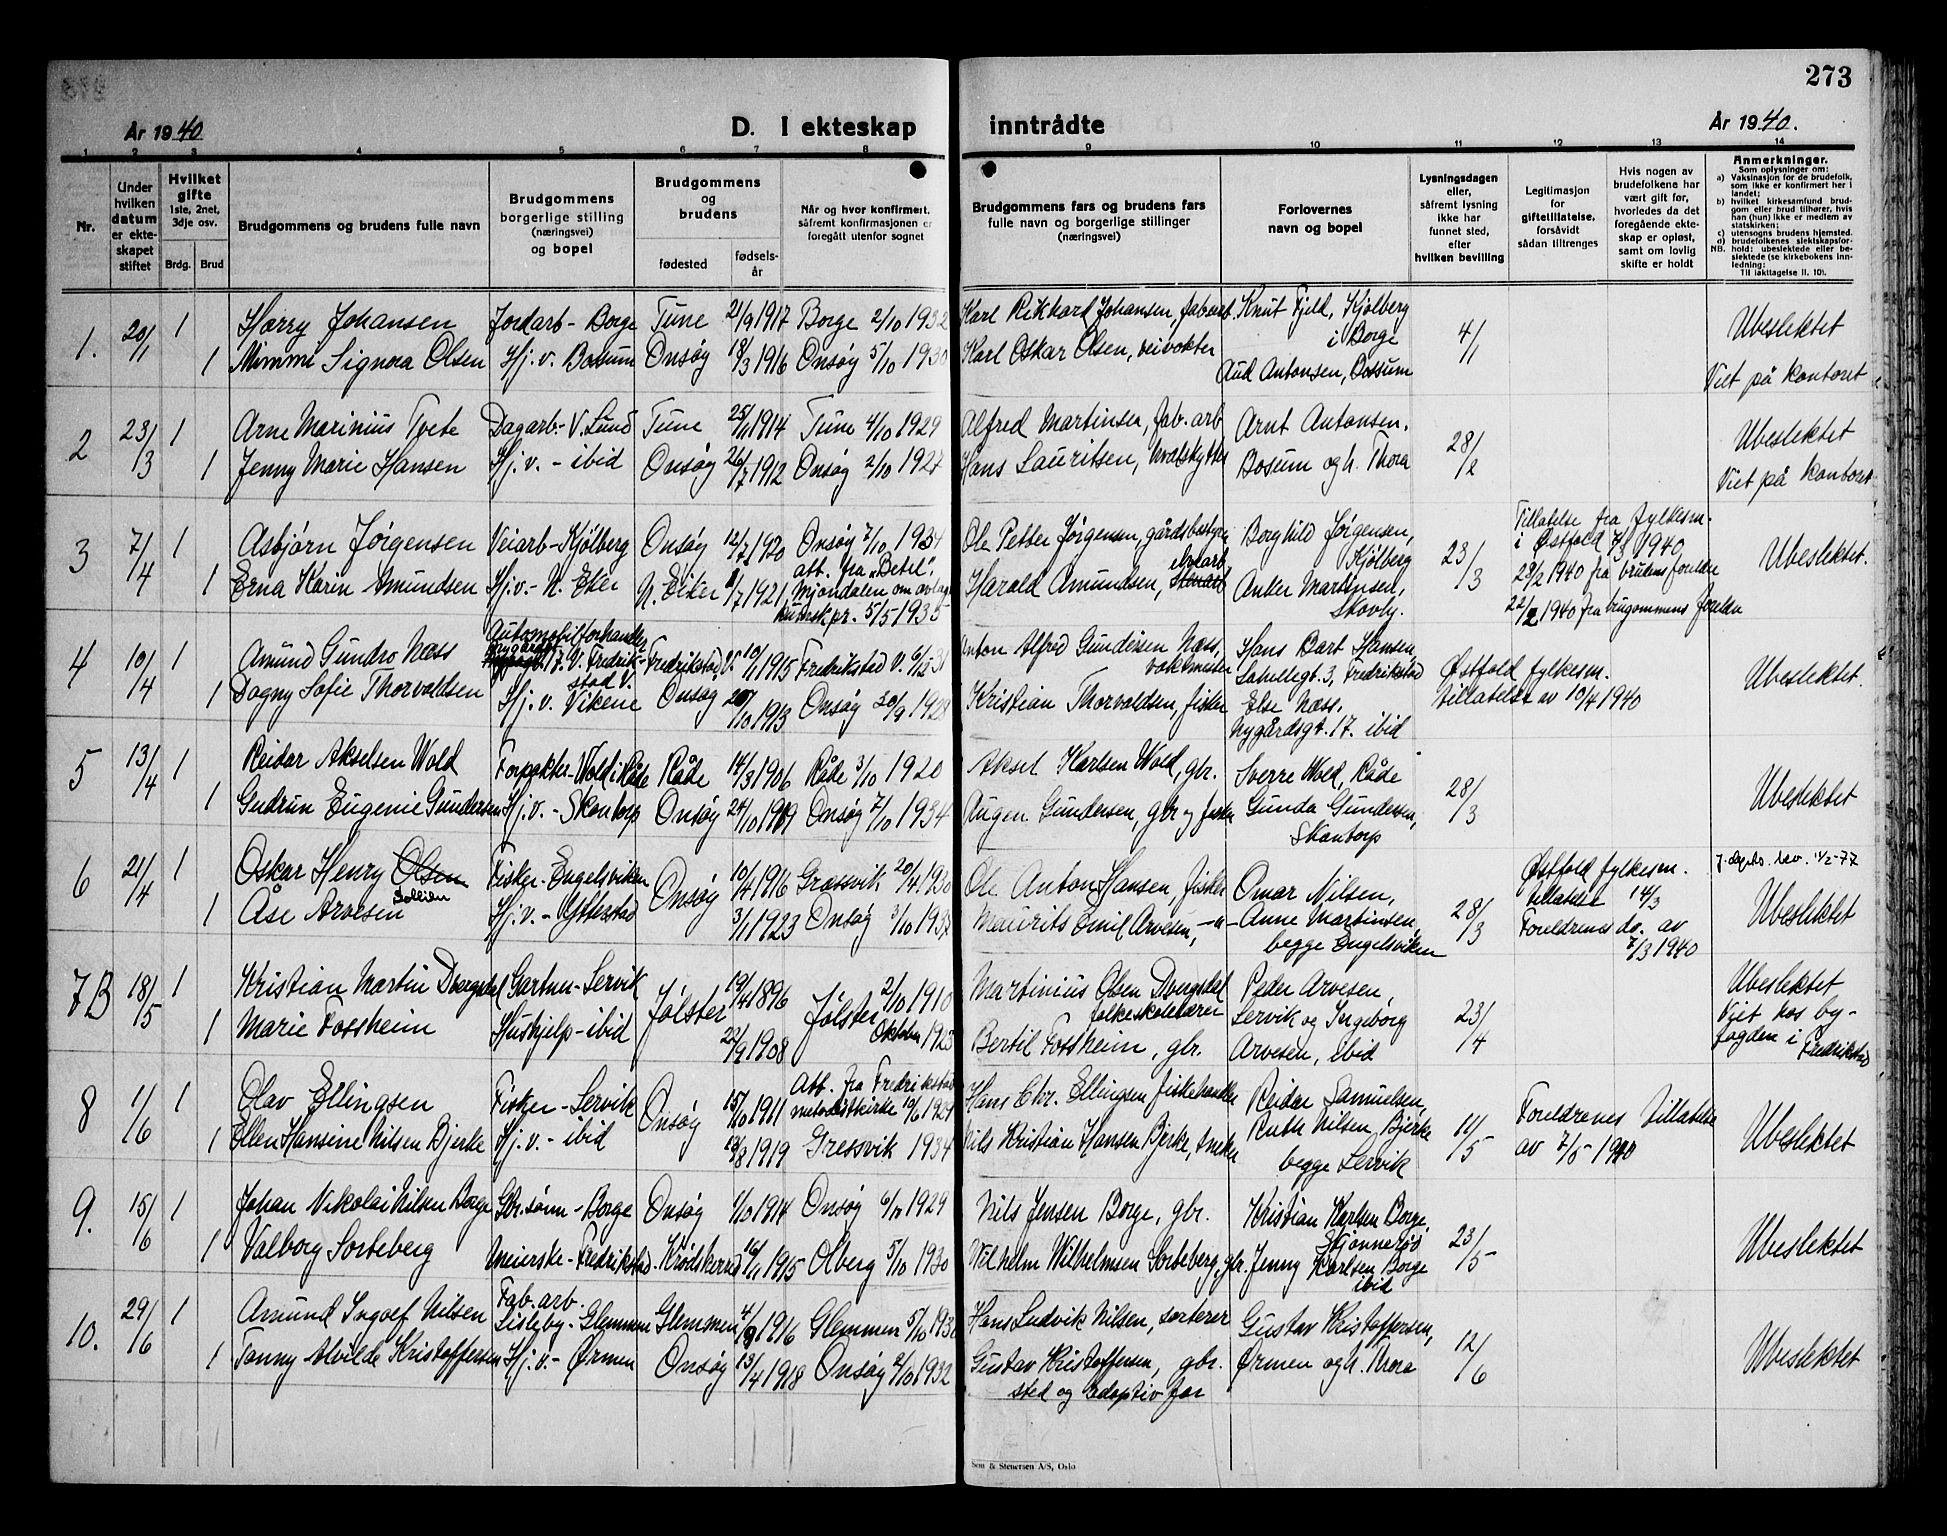 273
År 1940
D. I ekteskap inntrådte
År 1940.
1 2 3 4 5 6 7 8 9 10 11 12 13 14
Nr.
Under hvilken datum er ekteskapet stiftet
Hvilket gifte 1ste, 2net, 3dje osv.
Brdg. Brud
Brudgommens og brudens fulle navn
Brudgommens borgerlige stilling (næringsvei) og bopel
Brudgommens og brudens
fødested
fødselsår
Når og hvor konfirmert, såfremt konfirmasjonen er foregått utenfor sognet
Brudgommens fars og brudens fars fulle navn og borgerlige stillinger (næringsvei)
Forlovernes navn og bopel
Lysningsdagen eller, såfremt lysning ikke har funnet sted, efter hvilken bevilling
Legitimasjon for giftetillatelse, forsåvidt sådan tiltrenges
Hvis nogen av brudefolkene har vært gift før, hvorledes da det foregående ekteskap er opløst, samt om lovlig skifte er holdt
Anmerkninger.
Som oplysninger om:
a) Vaksinasjon for de brudefolk, som ikke er konfirmert her i landet;
b) hvilket kirkesamfund brudgom eller brud tilhører, hvis han (hun) ikke er medlem av statskirken;
c) utensogns brudens hjemsted.
d) brudefolkenes slektskapsforhold: ubeslektede eller beslektede (se kirkebokens innledning:
NB.
Til iakttagelse II. 10).
1. 20/1 1 Harry Johansen Jordarb - Borge Tune 21/9 1917 Borge 2/10 1932 Karl Rikhard Johansen, fabarb. Knut Fjeld, Kjølberg i Borge 4/1 Ubeslektet
1 Mimmi Signora Olsen Hj.v. Bossum Onsøy 18/3 1916 Onsøy 5/10 1930 Karl Oskar Olsen, veivokter Aud Antonsen, Bossum Viet på kontoret
2 23/3 1 Arne Marinius Tvete Dagarb. - V. Lund Tune 25/11 1914 Tune 4/10 1929 Alfred Martinsen, fab.arb Arnt Antonsen. 28/2 Ubeslektet
1 Jenny Marie Hansen Hj.v. - ibid Onsøy 26/7 1912 Onsøy 2/10 1927 Hans Lauritsen, hvalskytter Bosum og h. Thora Viet på kontoret
3 7/4 1 Asbjørn Jørgensen Veiarb - Kjølberg Onsøy 12/7 1920 Onsøy 7/10 1934 Ole Petter Jørgensen, gårdsbestyrer Borghild Jørgensen, Kjølberg 23/3 Tillatelse fra fylkesm. i Østfold 7/3 1940 Ubeslektet.
1 Erna Karin Amundsen Hj.v. - N. Eker N. Eiker 1/7 1921 att. fra "Betel", Mjøndalen om avlagt kunnsk.pr. 5/5 1935 Harald Amundsen, Anker Martinsen, Skovby. 29/2 1940 fra brudens foreldre
22/2 1940 fra brugommens foreldre
4 10/4 1 Amund Gundro Næss Automobilforhandler Nygårdsgt. 17. V. Fredrikstad V. Fredrikstad V. 10/1 1915 Fredrikstad V. 6/12 31 Anton Alfred Gundersen Næss, vaktmester Hans Bart Hansen, Labellegt. 3, Fredrikstad Østfold fylkesm. tillatelse av 10/4 1940 Ubeslektet.
1 Dagny Sofie Thorvaldsen Hj.v. Vikene Onsøy 20/10 1913 Onsøy 30/9 1928 Kristian Thorvaldsen, fisker Else Næss. Nygårdsgt. 17. ibid
5 13/4 1 Reidar Akselsen Wold Forpakter - Wold i Råde Råde 14/3 1906 Råde 3/10 1920 Aksel Karlsen Wold, gbr. Sverre Wold, Råde 28/3 Ubeslektet
1 Gudrun Eugenie Gundersen Hj.v. - Skantorp Onsøy 24/10 1919 Onsøy 7/10 1934 Augen Gundersen, gbr og fisker Gunda Gundersen, Skantorp
6 21/4 1 Oskar Henry Olsen Sollien Fisker - Engelsviken Onsøy 10/4 1916 Gressvik 20/4 1930 Ole Anton Hansen, fisker Omar Nilsen, 28/3 Østfold fylkesm. tillatelse 14/3 J. depts. skv. 1/2-77 Ubeslektet
1 Åse Arvesen Hj.v. - Ytterstad 3/1 1923 Onsøy 3/10 1937 Maurits Emil Arvesen, -"- Anne Martinsen, begge Engelsviken Foreldrenes do. av 7/3 1940
7B 18/5 1 Kristian Martin Dvergsdal Gartner - Lervik Jølster 19/4 1896 Jølster 2/10 1910 Martinius Olsen Dvergsdal folkeskolelærer Peder Arvesen, Lervik og Ingeborg Arvesen, ibid 23/4 Ubeslektet
1 Marie Fossheim Hushjelp - ibid 22/9 1908 Oktober 1923 Bertil Fossheim, gbr. Viet hos byfogden i Fredrikstad
8 1/6 1 Olav Ellingsen Fisker - Lervik Onsøy 15/10 1911 Att. fra Fredrikstad metodistkirke 10/6 1927 Hans Chr. Ellingsen fiskehandler Reidar Samuelsen, 11/5 Foreldrenes tillatelse av 7/5 1940 Ubeslektet
1 Ellen Hansine Nilsen Bjerke Hj.v. - ibid 13/8 1919 Gressvik 1934 Nils Kristian Hansen Bjerke, snekker Ruth Nilsen, Bjerke begge Lervik
9. 15/6 1 Johan Nikolai Nilsen Borge Gbr.sønn - Borge Onsøy 1/10 1914 Onsøy 6/10 1929 Nils Jensen Borge, gbr. Kristian Karlsen Borge, Skjønnerød 23/5 Ubeslektet
1 Valborg Sorteberg Meierske - Fredrikstad. Krødsherred 16/11 1915 Olberg 5/10 1930 Vilhelm Wilhelmsen Sorteberg, gbr. Jenny Karlsen Borge ibid
10. 29/6 1 Amund Ingolf Nilsen Fab.arb. Lisleby - Glemmen Glemmen 4/9 1916 Glemmen 5/10 1930 Hans Ludvik Nilsen, sorterer Gustav Kristoffersen, 12/6 Ubeslektet
1 Fanny Alvilde Kristoffersen Hj.v. - Ørmen Onsøy 13/4 1918 Onsøy 2/10 1932 Gustav Kristoffersen, gbr. sted og adoptiv far Ørmen og h. Thora
Sem & Stenersen A/S, Oslo